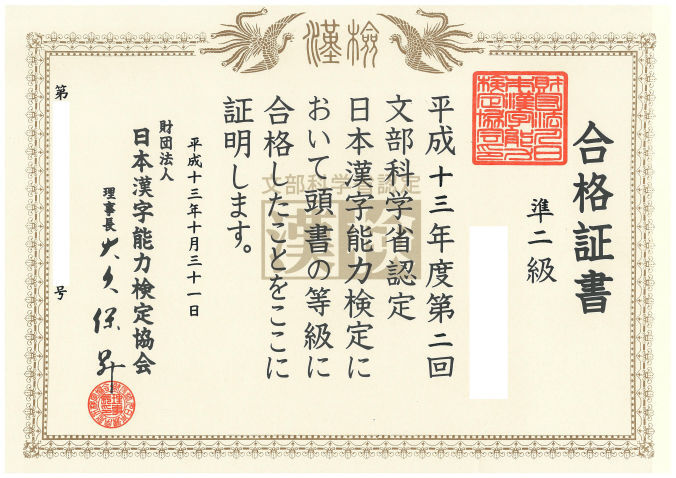 漢検
合格証書
準二級
平成十三年度第二回
文部科学省認定
日本漢字能力検定に
おいて頭書の等級に
合格したことをここに
証明します。
平成十三年十月三十一日
財団法人
日本漢字能力検定協会
理事長 大久保昇
第 号
文部科学省認定
漢検
財団法人日本漢字能力検定協会印